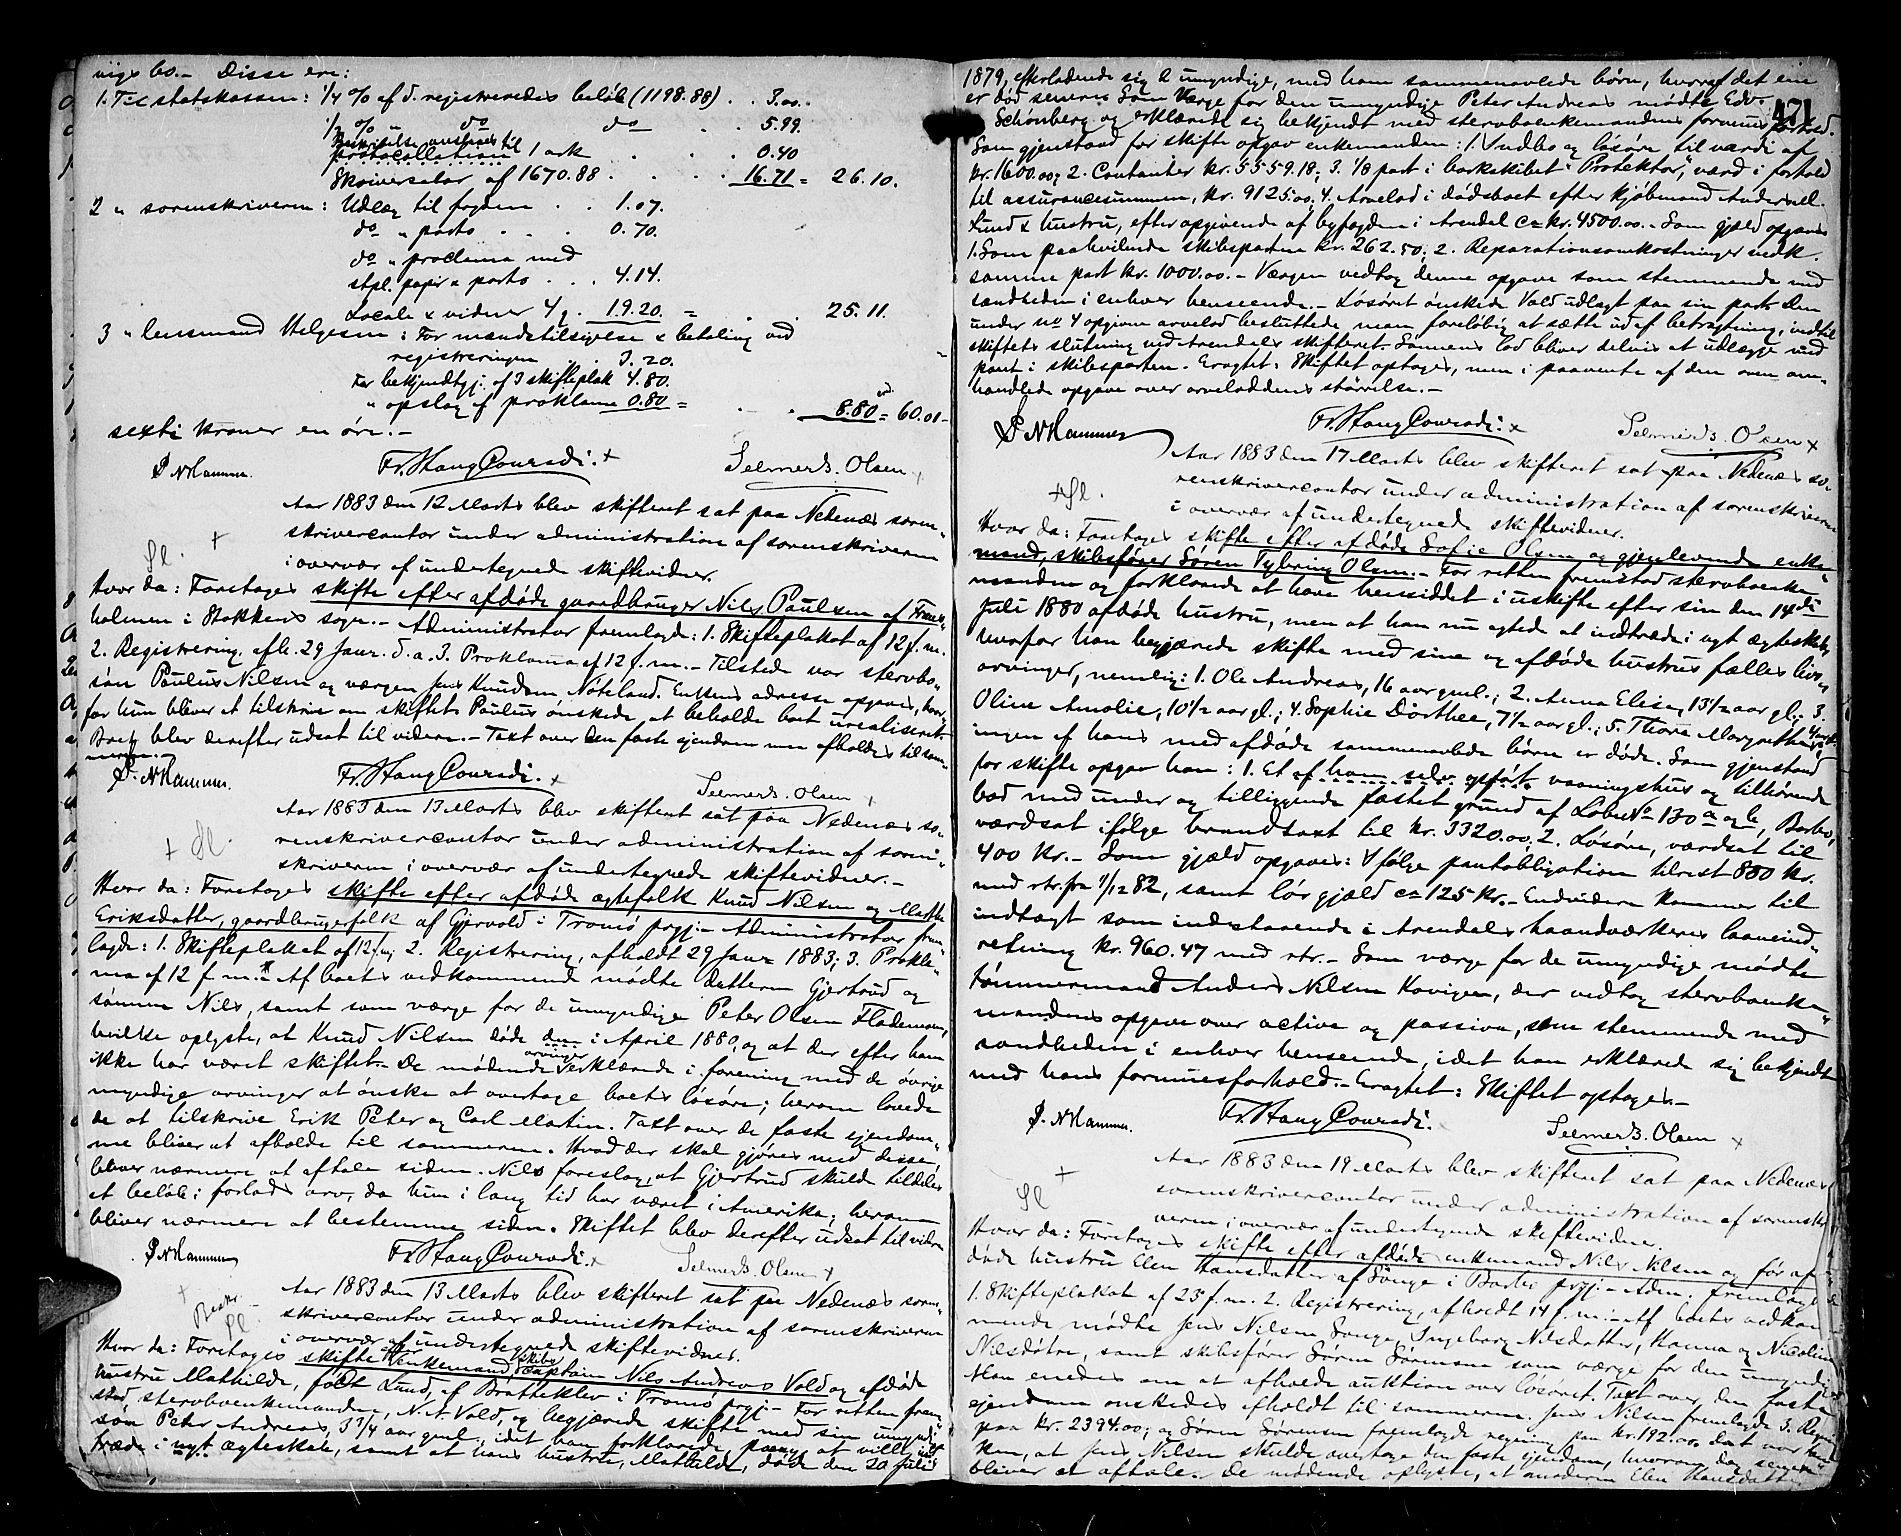 vigs bo. – Disse ere:
1. Til statskassen: 1/4 % af d. registreredes beløb (1198.88) . . 3.00
1/2 % " do do . . 5.99.
protocollation 1 ark . . . 0.40
Skriversalær af 1670.88 . . . . 16.71 = 26.10.
2 " sorenskriveren: Udlæg til fogden . . 1.07.
do " porto . . . 0.70.
do " proclama med
stpl. papir & porto . . . 4.14.
Locale & vidner 4 g. 19.20. = . . 25.11.
3 " lensmand Helgesen: For mandstilsigelse & betaling ved
registreringen 3.20.
For bekjendtgj. af 3 skifteplak. 4.80.
" opslag af proklama 0.80 = . . 8.80 = 60.01 –
sexti kroner en øre. –
P N Hammer. Fr. Stang Conradi. + Selmer B. Olsen +
Aar 1883 den 12 Marts blev skifteret sat paa Nedenæs soren-
skrivercontor under administration af sorenskriveren
i overvær af undertegnede skiftevidner.
Hvor da: Foretages skifte efter afdøde gaardbruger Nils Paulsen af
holmen i Stokkens sogn. – Administrator fremlagde: 1. Skifteplakat af 12 f. m.
2. Registrering, afh. 29 Janr. d. a. 3. Proklama af 12 f. m. – Tilstede var stervbo-
søn Paulus Nilsen og værgen Jens Knudsen Nøteland. Enkens adresse opgaves, hvor-
for hun bliver at tilskrive om skiftet. Paulus ønskede at beholde boet urealiseret.
Boet blev derefter udsat til videre. – Taxt over den faste eiendom maa afholdes til som-
meren. –
P. N Hammer. Fr. Stang Conradi. + Selmer B. Olsen +
Aar 1883 den 13 Marts blev skifteret sat paa Nedenæs so-
renskrivercontor under administration af soren-
skriveren i overvær af undertegnede skiftevidner. –
Hvor da: Foretages skifte efter afdøde ægtefolk Knud Nilsen og Marthe
Eriksdatter, gaardbrugerfolk af Gjervold i Tromø prgj. – Administrator frem-
lagde: 1. Skifteplakat af 12 f. m.; 2. Registrering, afholdt 29 Janr. 1883; 3. Prokla-
ma af 12 f. m. Af boets vedkommende mødte datteren Gjertrud og
sønnen Nils, samt som værge for de umyndige Peter Olsen Flademoen,
hvilke oplyste, at Knud Nilsen døde den i April 1880, og at der efter ham
ikke har været skiftet. – De mødende arvinger erklærede i forening med de øvrige
myndige arvinger at ønske at overtage boets løsøre; herom lovede
de at tilskrive Erik Peter og Carl Martin. Taxt over de faste eiendom-
me bliver at afholde til sommeren. Hvad der skal gjøres med disse,
bliver nærmere at aftale siden. Nils foreslog, at Gjertrud skulde tildeles
et beløb i forlods arv, da hun i lang tid har været i Amerika; herom
bliver nærmere at bestemme siden. Skiftet blev derefter udsat til videre
P N Hammer Fr. Stang Conradi. + Selmer B. Olsen +
Aar 1883 den 13 Marts blev skifteret sat paa Nedenæs soren-
skrivercontor under administration af sorenskriveren
i overvær af undertegnede skiftevidner.
Hvor da: Foretages skifte efter enkemand, skibscaptain Nils Andreas Vold og afdøde
hustru Mathilde, født Lund, af Bratteklev i Tromø prgj. – For retten frem-
stod stervboenkemanden, N. A. Vold, og begjærede skifte med sin umyndige
søn Peter Andreas, 3 3/4 aar gml., idet han forklarede paany at ville ind-
træde i nyt ægteskab, samt at hans hustru, Mathilde, døde den 20 Juli
471
1879, efterladende sig 2 umyndige, med ham sammenavlede børn, hvoraf det ene
er død senere. Som Værge for den umyndige Peter Andreas mødte Edv.
Schønberg og erklærede sig bekjendt med stervboenkemandens formuesforhold.
Som gjenstand for skifte opgav enkemanden: 1. Indbo og løsøre til værdi af
kr. 1600.00; 2. Contanter kr. 5559.18; 3. 1/8 part i barkskibet "Protektor", værd i forhold
til assurancesummen, kr. 9125.00; 4. Arvelod i dødsboet efter kjøbmand Anders
Lund & hustru, efter opgivende af byfogden i Arendal ca kr. 4500.00. – Som gjæld opgaves
1. Som paahvilende skibsparten kr. 262.50; 2. Reparationsomkostninger vedk.
samme part kr. 1000.00. – Værgen vedtog denne opgave som stemmende med
sandheden i enhver henseende. – Løsøret ønskede Vold udlagt paa sin part. Den
under no 4 opgivne arvelod besluttede man foreløbig at sætte ud af betragtning, indtil
skiftets slutning ved Arendals skifteret. Sønnens lod bliver delvis at udlægge med
pant i skibsparten. Eragtet: Skiftet optages, men i paavente af den oven om-
handlede opgave over arveloddens størrelse. –
P N Hammer Fr. Stang Conradi. + Selmer B. Olsen +
Aar 1883 den 17 Marts blev skifteret sat paa Nedenæs so-
renskrivercontor under administration af sorenskriveren
i overvær af undertegnede skiftevidner.
Hvor da: Foretages skifte efter afdøde Sofie Olsen og gjenlevende enke-
mand, skibsfører Søren Tybring Olsen. – For retten fremstod stervboenke-
manden og forklarede at have hensiddet i uskifte efter sin den 14de
Juli 1880 afdøde hustru, men at han nu agtede at indtræde i nyt ægteskab,
hvorfor han begjærede skifte med sine og afdøde hustrus fælles livs-
arvinger, nemlig: 1. Ole Andreas, 16 aar gml.; 2. Anna Elise, 13 1/2 aar gl.; 3.
Oline Amalie, 10 1/2 aar gl.; 4. Sophie Dorthea, 7 1/2 aar gl.; 5. Thora Margarethe, 4 aar gl.
ingen af hans med afdøde sammenavlede børn er døde. Som gjenstand
for skifte opgav han: 1. Et af ham selv opført vaaningshus og tilhørende
bod med under og tilliggende fæstet grund af Løbe No 130 a og b, Barbo,
værdsat ifølge brandtaxt til kr. 3320.00; 2. Løsøre, værdsat til
400 kr. – Som gjæld opgaves: Ifølge pantobligation tilrest 880 kr.
med rtr. fra 1/12 82, samt løs gjæld ca 125 kr. – Endvidere kommer til
indtægt som indestaaende i Arendals haandværkeres laaneind-
retning kr. 960.47 med rtr. – Som værge for de umyndige mødte
tømmermand Anders Nilsen Kovigen, der vedtog stervboenke-
mandens opgave over activa og passiva, som stemmende med
sandheden i enhver henseende, idet han erklærede sig bekjendt
med hans formuesforhold. – Eragtet: Skiftet optages. –
P. N Hammer. Fr. Stang Conradi. Selmer B. Olsen +
Aar 1883 den 19 Marts blev skifteret sat paa Nedenæs
sorenskrivercontor under administration af sorenskri-
veren i overvær af undertegnede skiftevidner.
Hvor da: Foretages skifte efter afdøde enkemand Nils Nilsen og før af-
døde hustru Elen Hansdatter af Songe i Barbo prgj. – Adm. fremlagde
1. Skifteplakat af 25 f. m. 2. Registrering, afholdt 14 f. m. – Af boets vedkom-
mende mødte Jens Nilsen Songe, Ingeborg Nilsdatter, Hanna og Nicoline
Nilsdøtre, samt skibsfører Søren Sørensen som værge for den umyndige
Man enedes om at afholde auktion over løsøret. Taxt over den faste
eiendom ønskedes afholdt til sommeren. Jens Nilsen fremlagde 3. Regn.
paa kr. 2394.00; og Søren Sørensen fremlagde regning paa kr. 192.00. Det var
ken, at Jens Nilsen skulde overtage den faste eiendom, hvorom dog senere
bliver at aftale. De mødende oplyste, at moderen Elen Hansdatter